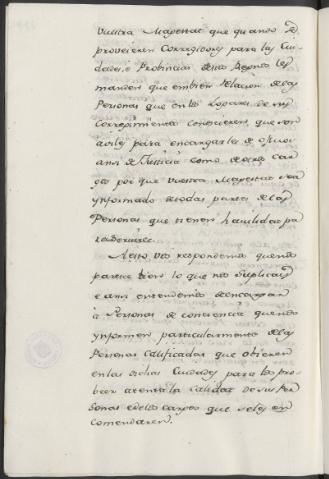 vuestra Magestad que quando se
proveieren Corregidores para las Ciu-
dades, é Provincias destos Reynos les
manden que embien relacion de las
Personas que en los Lugares de sus
Corregimientos conoscieren, que son
aviles para encargarles de oficios
ansi de Justicia como de otros car-
gos por que vuestra Magestad sea
ynformado de todas partes de las
Personas que tienen havilidad pa
ra le servir.
A esto vos respondemos que nos
parece bien lo que nos suplicais
e ansi entendemos de encargar
á Personas de conciencia que nos
ynformen particularmente de las
Personas calificadas que obieren
en las dichas Ciudades para los pro-
beer atenta la calidad de sus Per
sonas e de los cargos que se les en
comendaren.